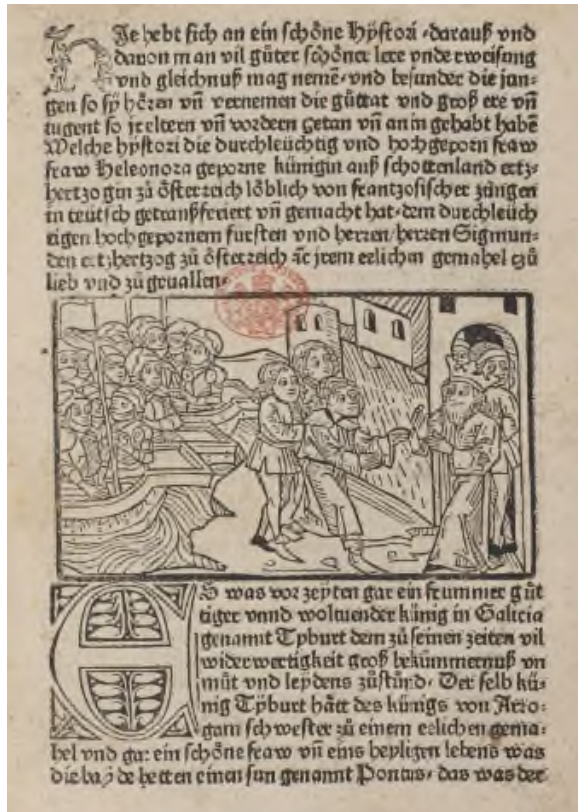 HIe hebt sich an ein schöne hÿstori ·darauß vnd
dauon man vil gůter schöner lere vnderweisung
vnd gleichnuß mag nemē·vnd besunder die jun-
gen so sÿ hören vñ vernemen die gůttat vnd groß ere vñ
tugent so jr eltern vñ vordern getan vñ an in gehabt habē
Welche hÿstori die durchleüchtig vnd hochgeporn fraw
fraw Heleonora geporne künigin auß schottenland ertz-
hertzogin zů österreich löblich von frantzosischer züngen
in teutsch getranßferiert vñ gemacht hat·dem durchleüch
tigen hochgepornem fursten vnd herren/herren Sigmun-
den ertzhertzog zů österreich ⁊c jrem eelichen gemahel czů
lieb vnd zů geuallen·
ES was vor zeÿten gar ein frummer gůt
tiger vnnd woltuender künig in Galicia
genannt Tÿburt dem zů seinen zeiten vil
widerwertigkeit groß bekümmernuß vn
můt vnd leydens zůstůnd· Der selb kü-
nig Tÿburt hått des künigs von Arro-
gani schwester zů einem eelichen gema-
hel vnd gar ein schöne fraw vñ eins heyligen lebens was
die baÿde hetten einen sun genannt Pontus· das was der